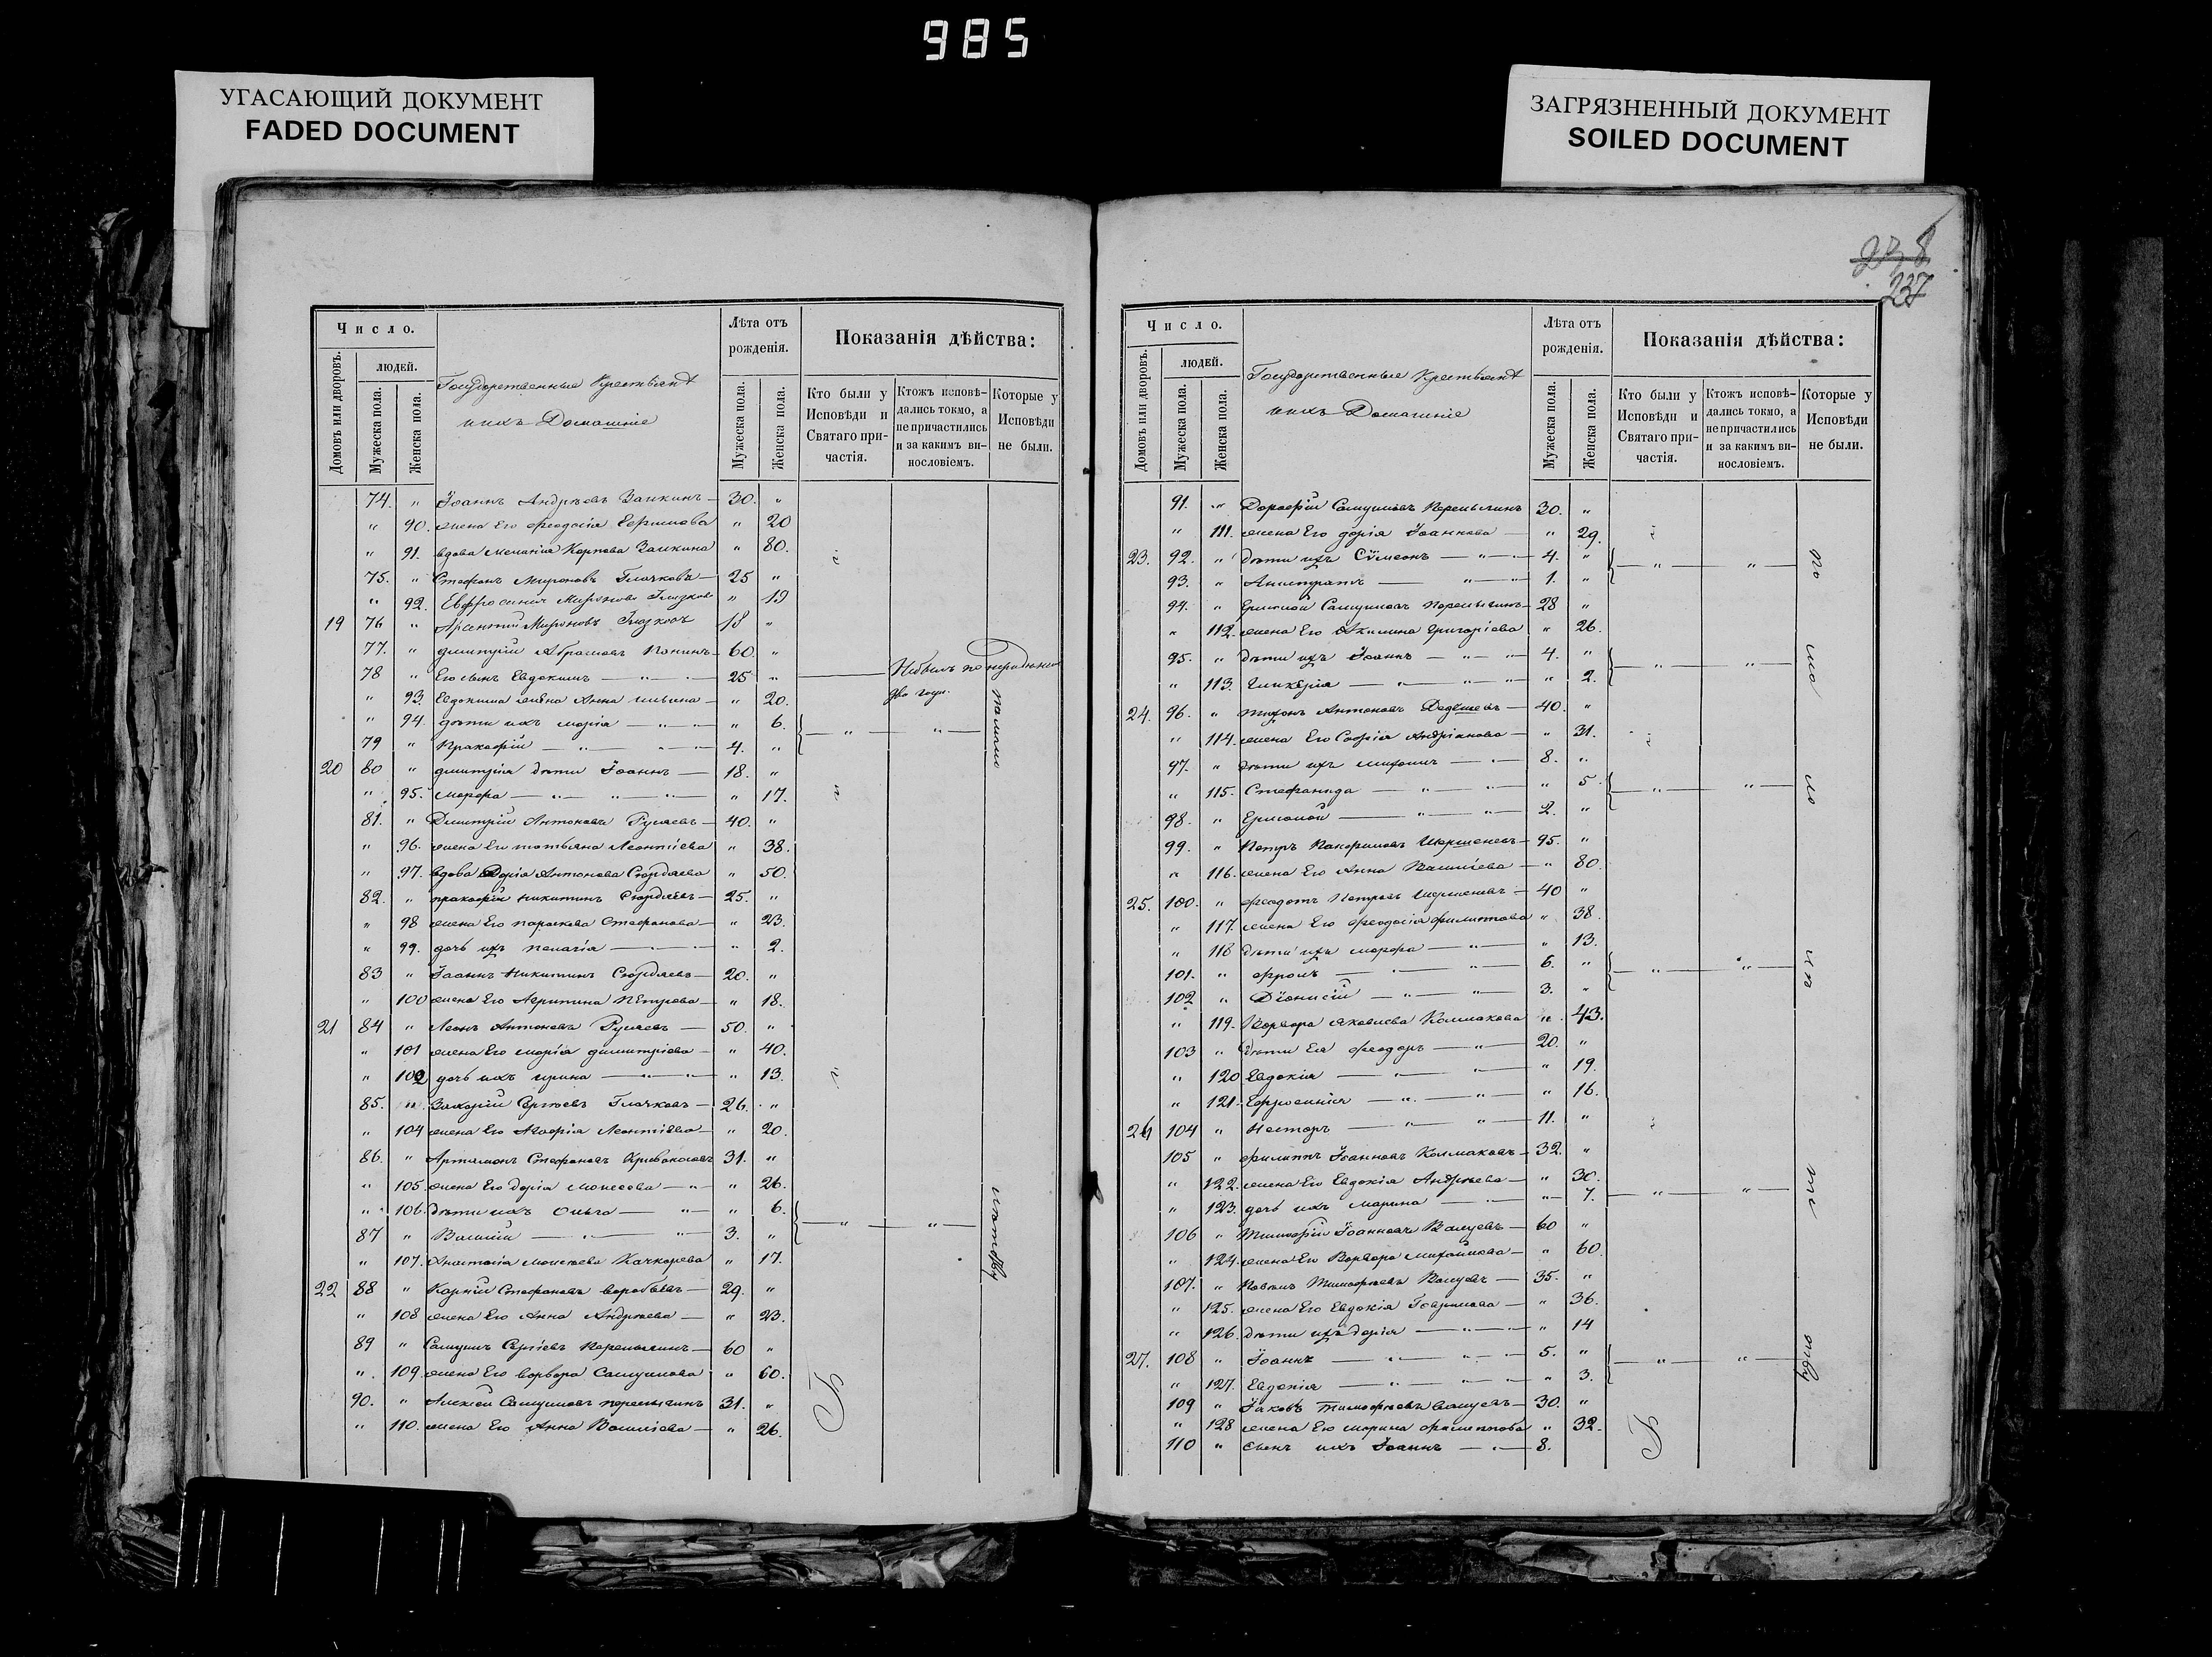 985
УГАСАЮЩИЙ ДОКУМЕНТ
FADED DOCUMENT
ЗАГРЯЗНЕННЫЙ ДОКУМЕНТ
SOILED DOCUMENT
238
237
Число.
Домовъ или дворовъ.
людей.
Мужеска пола.
Женска пола.
Государственные Крестьяне
и ихъ Домашніе
Лѣта отъ рожденія.
Мужеска пола.
Женска пола.
Показанія дѣйства:
Кто были у Исповѣди и Святаго причастія.
Ктожъ исповѣдались токмо, а не причастились и за какимъ винословіемъ.
Которые у Исповѣди не были.
74. " Іоаннъ Андрѣевъ Заикинъ — 30. "
" 90. жена Его Феодосія " 20
" 91. вдова Меланія Карпова Заикина " 80.
75. " Стефанъ Мироновъ — 25 "
" 92. Евфросинія Миронова " 19
19 76 " Арсентій Мироновъ 18 "
77. " Димитрій Абрамовъ — 60. "
78 " Его сынъ Евдокимъ — 25 "
" 93. Евдокима жена Анна Ильина — " 20.
два года.
" 94. дѣти ихъ Марія — " 6.
79 " Пракофій — 4. "
20 80 " Димитрія дѣти Іоаннъ — 18. "
" 95. Марфа — " 17.
81. " Димитрій Антоновъ — 40. "
" 96. жена Его Татьяна Леонтіева " 38.
" 97. вдова Дарія Антонова " 50.
82. " Пракофій Никитинъ — 25. "
" 98 жена Его Параскева Стефанова — " 23.
" 99. дочь ихъ Пелагія — " 2.
83 " Іоаннъ Никитинъ — 20. "
" 100 жена Его Агрипина Петрова — " 18.
21 84 " Леонъ Антоновъ — 50. "
" 101 жена Его Марія Димитріева — " 40.
" 102 дочь ихъ Ирина — " 13.
85. " Захарій Сергѣевъ — 26. "
" 104 жена Его Агафія Леонтіева — " 20.
86. " Артамонъ Стефановъ 31. "
" 105. жена Его Дарія Моисеева — " 26.
" 106. дѣти ихъ Ольга — " 6.
87 " Василій — 3. "
" 107. Анастасія Моисеева " 17.
22 88 " Карпій Стефановъ Воробьевъ — 29. "
" 108 жена Его Анна Андрѣева — " 23.
89 " Самуилъ Сергіевъ — 60 "
" 109. жена Его Варвара Самуилова " 60.
90. " Алексей Самуиловъ 31. "
" 110. жена Его Анна Василіева — " 26.
Число.
Домовъ или дворовъ.
людей.
Мужеска пола.
Женска пола.
Государственные Крестьяне
и ихъ Домашніе
Лѣта отъ рожденія.
Мужеска пола.
Женска пола.
Показанія дѣйства:
Кто были у Исповѣди и Святаго причастія.
Ктожъ исповѣдались токмо, а не причастились и за какимъ винословіемъ.
Которые у Исповѣди не были.
91. " Дорофій Самуиловъ 30. "
" 111. жена Его Дарія Іоаннова — " 29.
23. 92. " дѣти ихъ Сѵмеонъ — 4. "
93. " — 1. "
94. " Ермолай Самуиловъ 28 "
" 112. жена Его Акилина Григоріева " 26.
95. " дѣти ихъ Іоаннъ — 4. "
" 113. Гликерія — " 2.
24. 96. " Тихонъ Антоновъ — 40. "
" 114. жена Его Софія Андріанова — " 31.
97. " дѣти ихъ Михаилъ — 8. "
" 115. Стефанида — " 5
98. " Ермолай — 2. "
99. " Петръ — 95. "
" 116. жена Его Анна Василіева — " 80.
25. 100. " Феодотъ Петровъ — 40 "
" 117. жена Его Феодосія Филиппова " 38.
" 118 дѣти ихъ Марфа — " 13.
101. " Фролъ — 6. "
102 " Діонисій — 3. "
" 119. Варвара Яковлева Колмакова " 43.
103 " дѣти Ея Феодоръ — 20. "
" 120 Евдокія — " 19.
" 121. Ефросинія — " 16.
26 104 " Несторъ — 11. "
105 " Филиппъ Іоанновъ Колмаковъ — 32. "
" 122. жена Его Евдокія Андрѣева — " 30.
" 123. дочь ихъ Марина — " 7.
106 " Тимофій Іоанновъ Валуевъ — 60 "
" 124. жена Его Варвара Михаилова — " 60.
107. " Павелъ Тимофѣевъ Валуевъ — 35. "
" 125. жена Его Евдокія Гаврилова — " 36.
" 126. дѣти ихъ Дарія — " 14
27. 108 " Іоаннъ — 5. "
" 127. Евдокія — " 3.
109 " Іаковъ Тимофѣевъ Валуевъ — 30. "
" 128 жена Его Марина Филиппова " 32.
110 " сынъ ихъ Іоаннъ — 8.